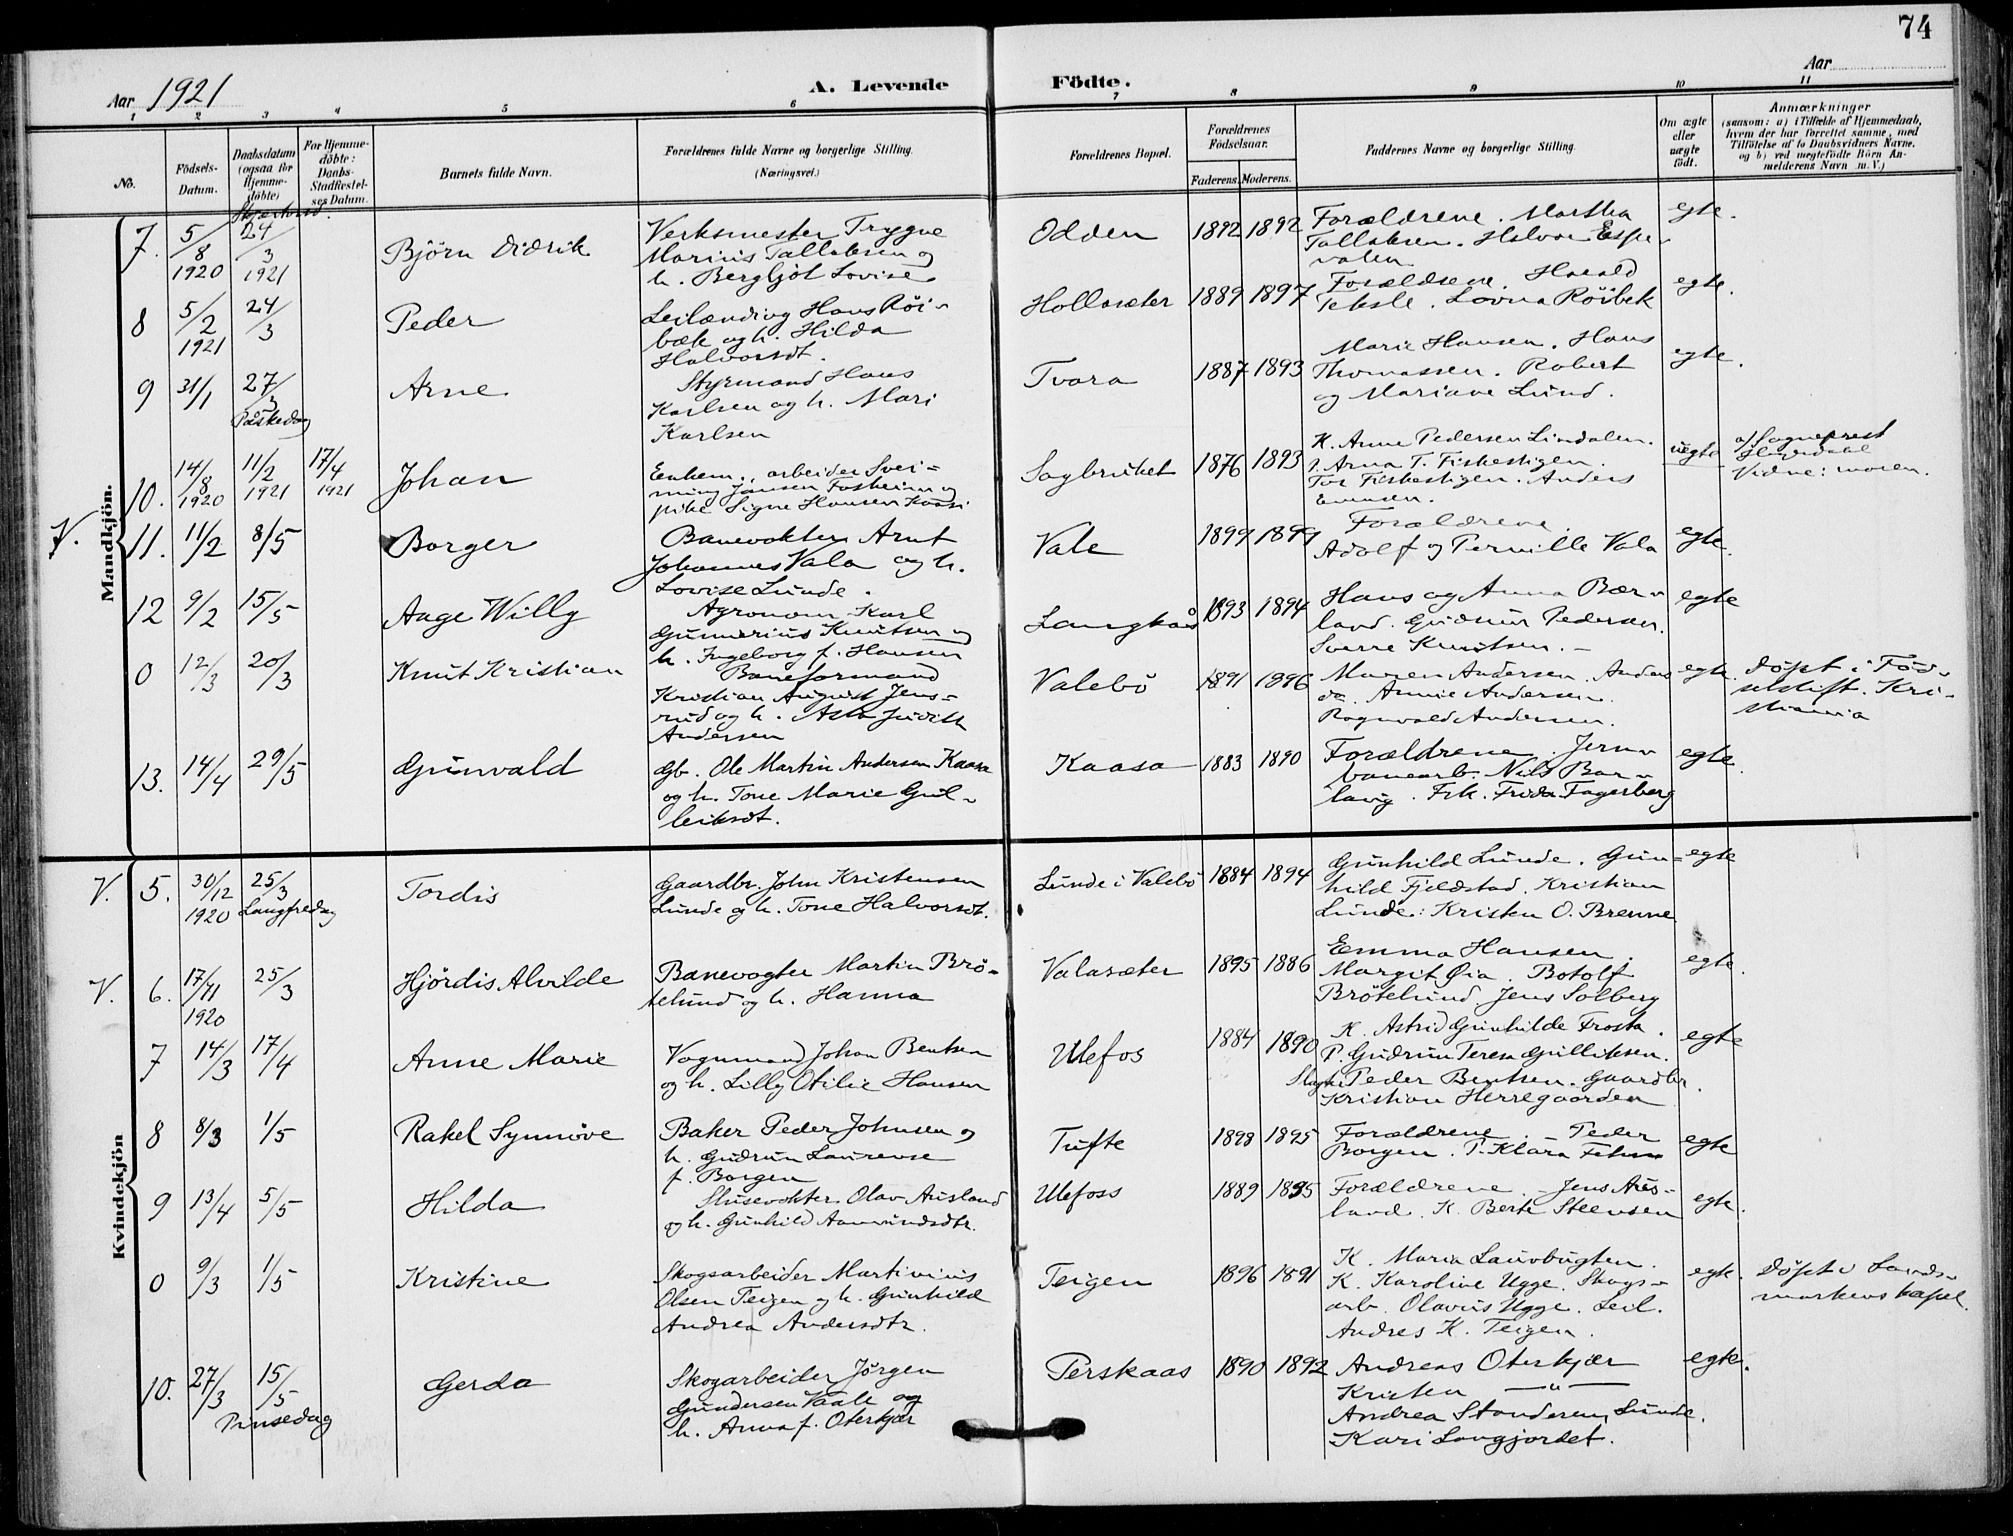 74
Aar 1921
A. Levende Födte.
Aar
1 2 3 4 5 6 7 8 9 10 11
No.
Födsels-
Datum.
Daabsdatum
(ogsaa for
Hjemme-
döbte)
For Hjemme-
döbte:
Daabs-
Stadfæstel-
ses Datum.
Barnets fulde Navn.
Forældrenes fulde Navne og borgerlige Stilling.
(Næringsvei.)
Forældrenes Bopæl.
Forældrenes
Födselsaar.
Faderens. Moderens.
Faddernes Navne og borgerlige Stilling.
Om ægte
eller
uægte
født.
Anmærkninger
(saasom: a) i Tilfælde af Hjemmedaab,
hvem der har forrettet samme, med
Tilföielse af to Daabsvidners Navne,
og b) ved uegtefödte Börn An-
melderens Navn m. V.)
Mandkjön.
7. 5/8 1920 Skjærtorsd. 24/3 1921 Björn Didrik
Verksmester Trygve
Marius Tallaksen og
h. Bergljot Lovise
Odden 1892 1892
Forældrene. Martha
Tallaksen. Halvor Espe-
valen
egte.
8 5/2 1921 24/3 Peder
Leilænding Hans Röi-
bæk og h. Hilda
Halvorsdt.
Hollasæter 1889 1897
Forældrene. Harald
Teksle. Lovna Röibek
egte.
9 31/1 27/3 Påskedag Arne
Styrmand Hans
Karlsen og h. Mari
Karlsen
Tvara 1887 1893
Marie Hansen. Hans
Thomassen. Robert
og Mariane Lund.
egte.
10. 14/8 1920 11/2 1921 17/4 1921 Johan
Enkem., arbeider Svei-
ning Jansen Fosheim og
pike Signe Hansen Kaasi
Sagbruket 1876 1893
K. Anne Pedersen Lindalen.
P. Anna T. Fiskestigen.
Tor Fiskestigen. Anders
uegte
a) Sogneprest
Vidne: moren.
V. 11. 11/2 8/5 Borger
Banevokter Arnt
Johannes Vala og h.
Lovise Lunde.
Vale 1899 1899
Forældrene.
Adolf og Pernille Vala
egte.
12 9/2 15/5 Aage Willy
Agronom Karl
Gunnerius Knutsen og
h. Ingeborg f. Hansen
Langkås 1893 1894
Hans og Anna Bær-
land. Gudrun Pedersen.
Sverre Knutsen.
egte
0 12/3 20/3 Knut Kristian
Baneformand
Kristian August Jens-
rud og h. Asta Judith
Andersen
Valebö 1891 1896
Maren Andersen. Anders
og Annie Andersen.
Ragnvald Andersen.
egte.
Döpt i Föd-
selstift. Kri-
stiania
13. 14/4 29/5 Gunvald
Gb. Ole Martin Andersen Kaasa
og h. Tone Marie Gul-
leiksdt.
Kaasa 1883 1890
Forældrene. Jern-
banearb. Nils Bor-
lavig. Frk. Frida Fagerberg
egte.
Kvindekjön
V. 5. 30/12 1920 25/3 Langfredag Tordis
Gaardbr. John Kristensen
Lunde og h. Tone Halvorsdt.
Lunde i Valebö 1884 1894
Gunhild Lunde. Gun-
hild Fjeldstad. Kristian
Lunde: Kristen O. Brenne.
egte
V. 6. 17/11 1920 25/3 Hjördis Alvilde
Banevogter Martin Brö-
telund og h. Hanna
Valasæter 1895 1886
Emma Hansen,
Margit Øia. Botolf
Brötelund. Jens Solberg
egte.
7 14/3 17/4 Anne Marie
Vognmand Johan Bentsen
og h. Lilly Otilie Hansen
Ulefos 1884 1890
K. Astrid Gunhilde Frosta.
P. Gudrun Teresa Gulliksen.
Peder Bentsen. Gaardbr.
Kristian Herregaarden
egte
8 8/3 1/5 Rakel Synnøve
Baker Peder Johnsen og
h. Gudrun Laurense
f. Borgen
Tufte 1898 1895
Forældrene. Peder
Borgen. P. Klara
egte
9 13/4 5/5 Hilda
Slusevokter Olav Ausland
og h. Gunhild Aamundsdtr.
Ulefoss 1889 1895
Forældrene. Jens Aus-
land. K. Berte Steensen
egte.
0 9/3 1/5 Kristine
Skogsarbeider Martinius
Olsen Teigen og h. Gunhild
Andrea Andersdtr.
Teigen 1896 1891
K. Maria Lauvbugten.
K. Karoline Ugge. Skogs-
arb. Olavus Ugge. Leil.
Andres K. Teigen.
egte.
Döpt i Lands-
markens kapel.
10. 27/3 15/5 Pinsedag Gerda
Skogarbeider Jörgen
Gundersen Vaale og
h. Anna f. Oterkjær
Perskaas 1890 1892
Andreas Oterkjær
Kristen —"—
Andrea Standeren, Lunde.
Kari Langjordet.
egte.